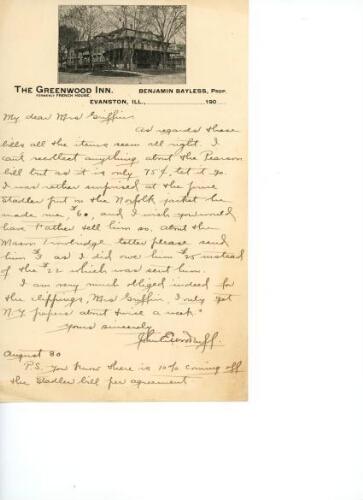 The Greenwood Inn.
Formerly French House.
Benjamin Bayless, Prop.
Evanston, Ill., 190
My dear Mrs Griffin
As regards these
bills all the items seem all right. I
can't recollect anything about the Pearson
bill but as it is only 75¢, let it go.
I was rather surprised at the price
Stadler put on the Norfolk jacket he
made me, $60, and I wish you would
have Father tell him so. About the
Mason letter please send
him $3 as I did owe him $25 instead
of the $22 which was sent him.
I am very much obliged indeed for
the clippings, Mrs Griffin. I only get
N.Y. papers about twice a week.
Yours sincerely
John
August 30
P.S. You know there is 10% coming off
the Stadler bill per agreement